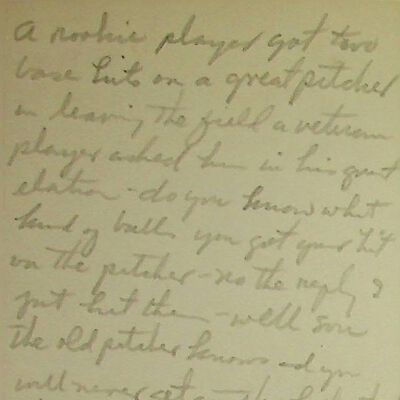 a rookie player got two
base hits on a great pitcher
in leaving the field a veteran
player asked him in his great
elation - do you know what
kind of balls you got your hit
on the pitcher - no the reply I
just hit them - well son
the old pitcher knows and you
will never get